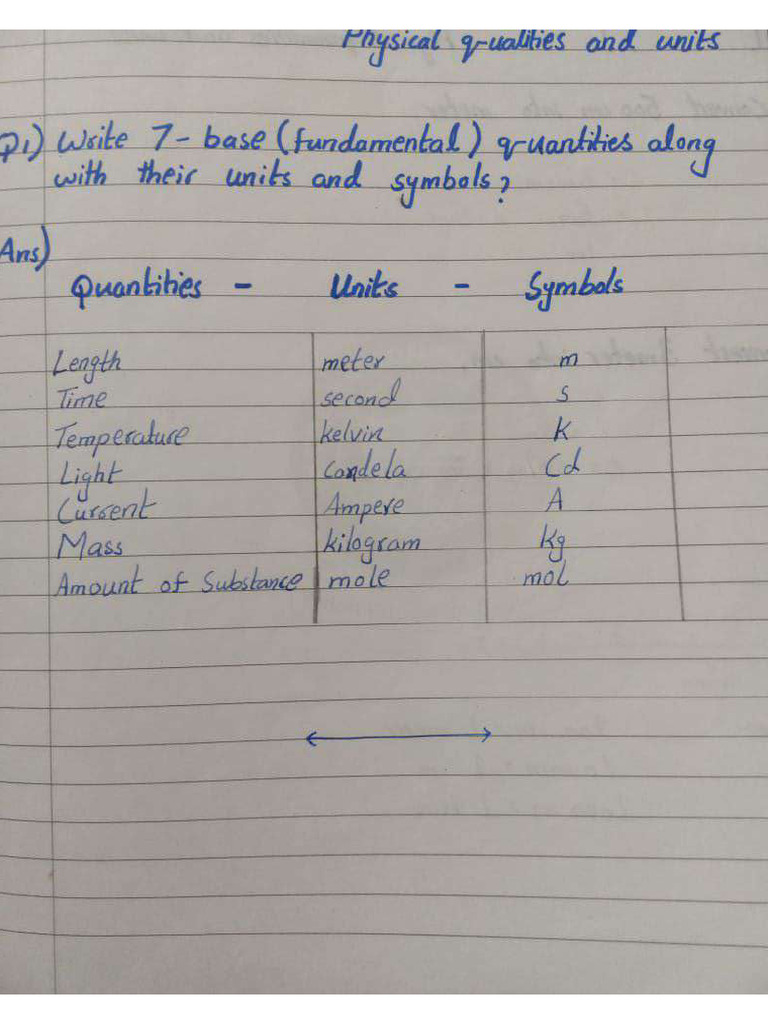 Physical qualities and units
Q1) Write 7-base (fundamental) quantities along
with their units and symbols?
Ans)
Quantities - Units - Symbols
Length meter m
Time second s
Temperature kelvin K
Light Candela Cd
Current Ampere A
Mass kilogram Kg
Amount of Substance mole mol